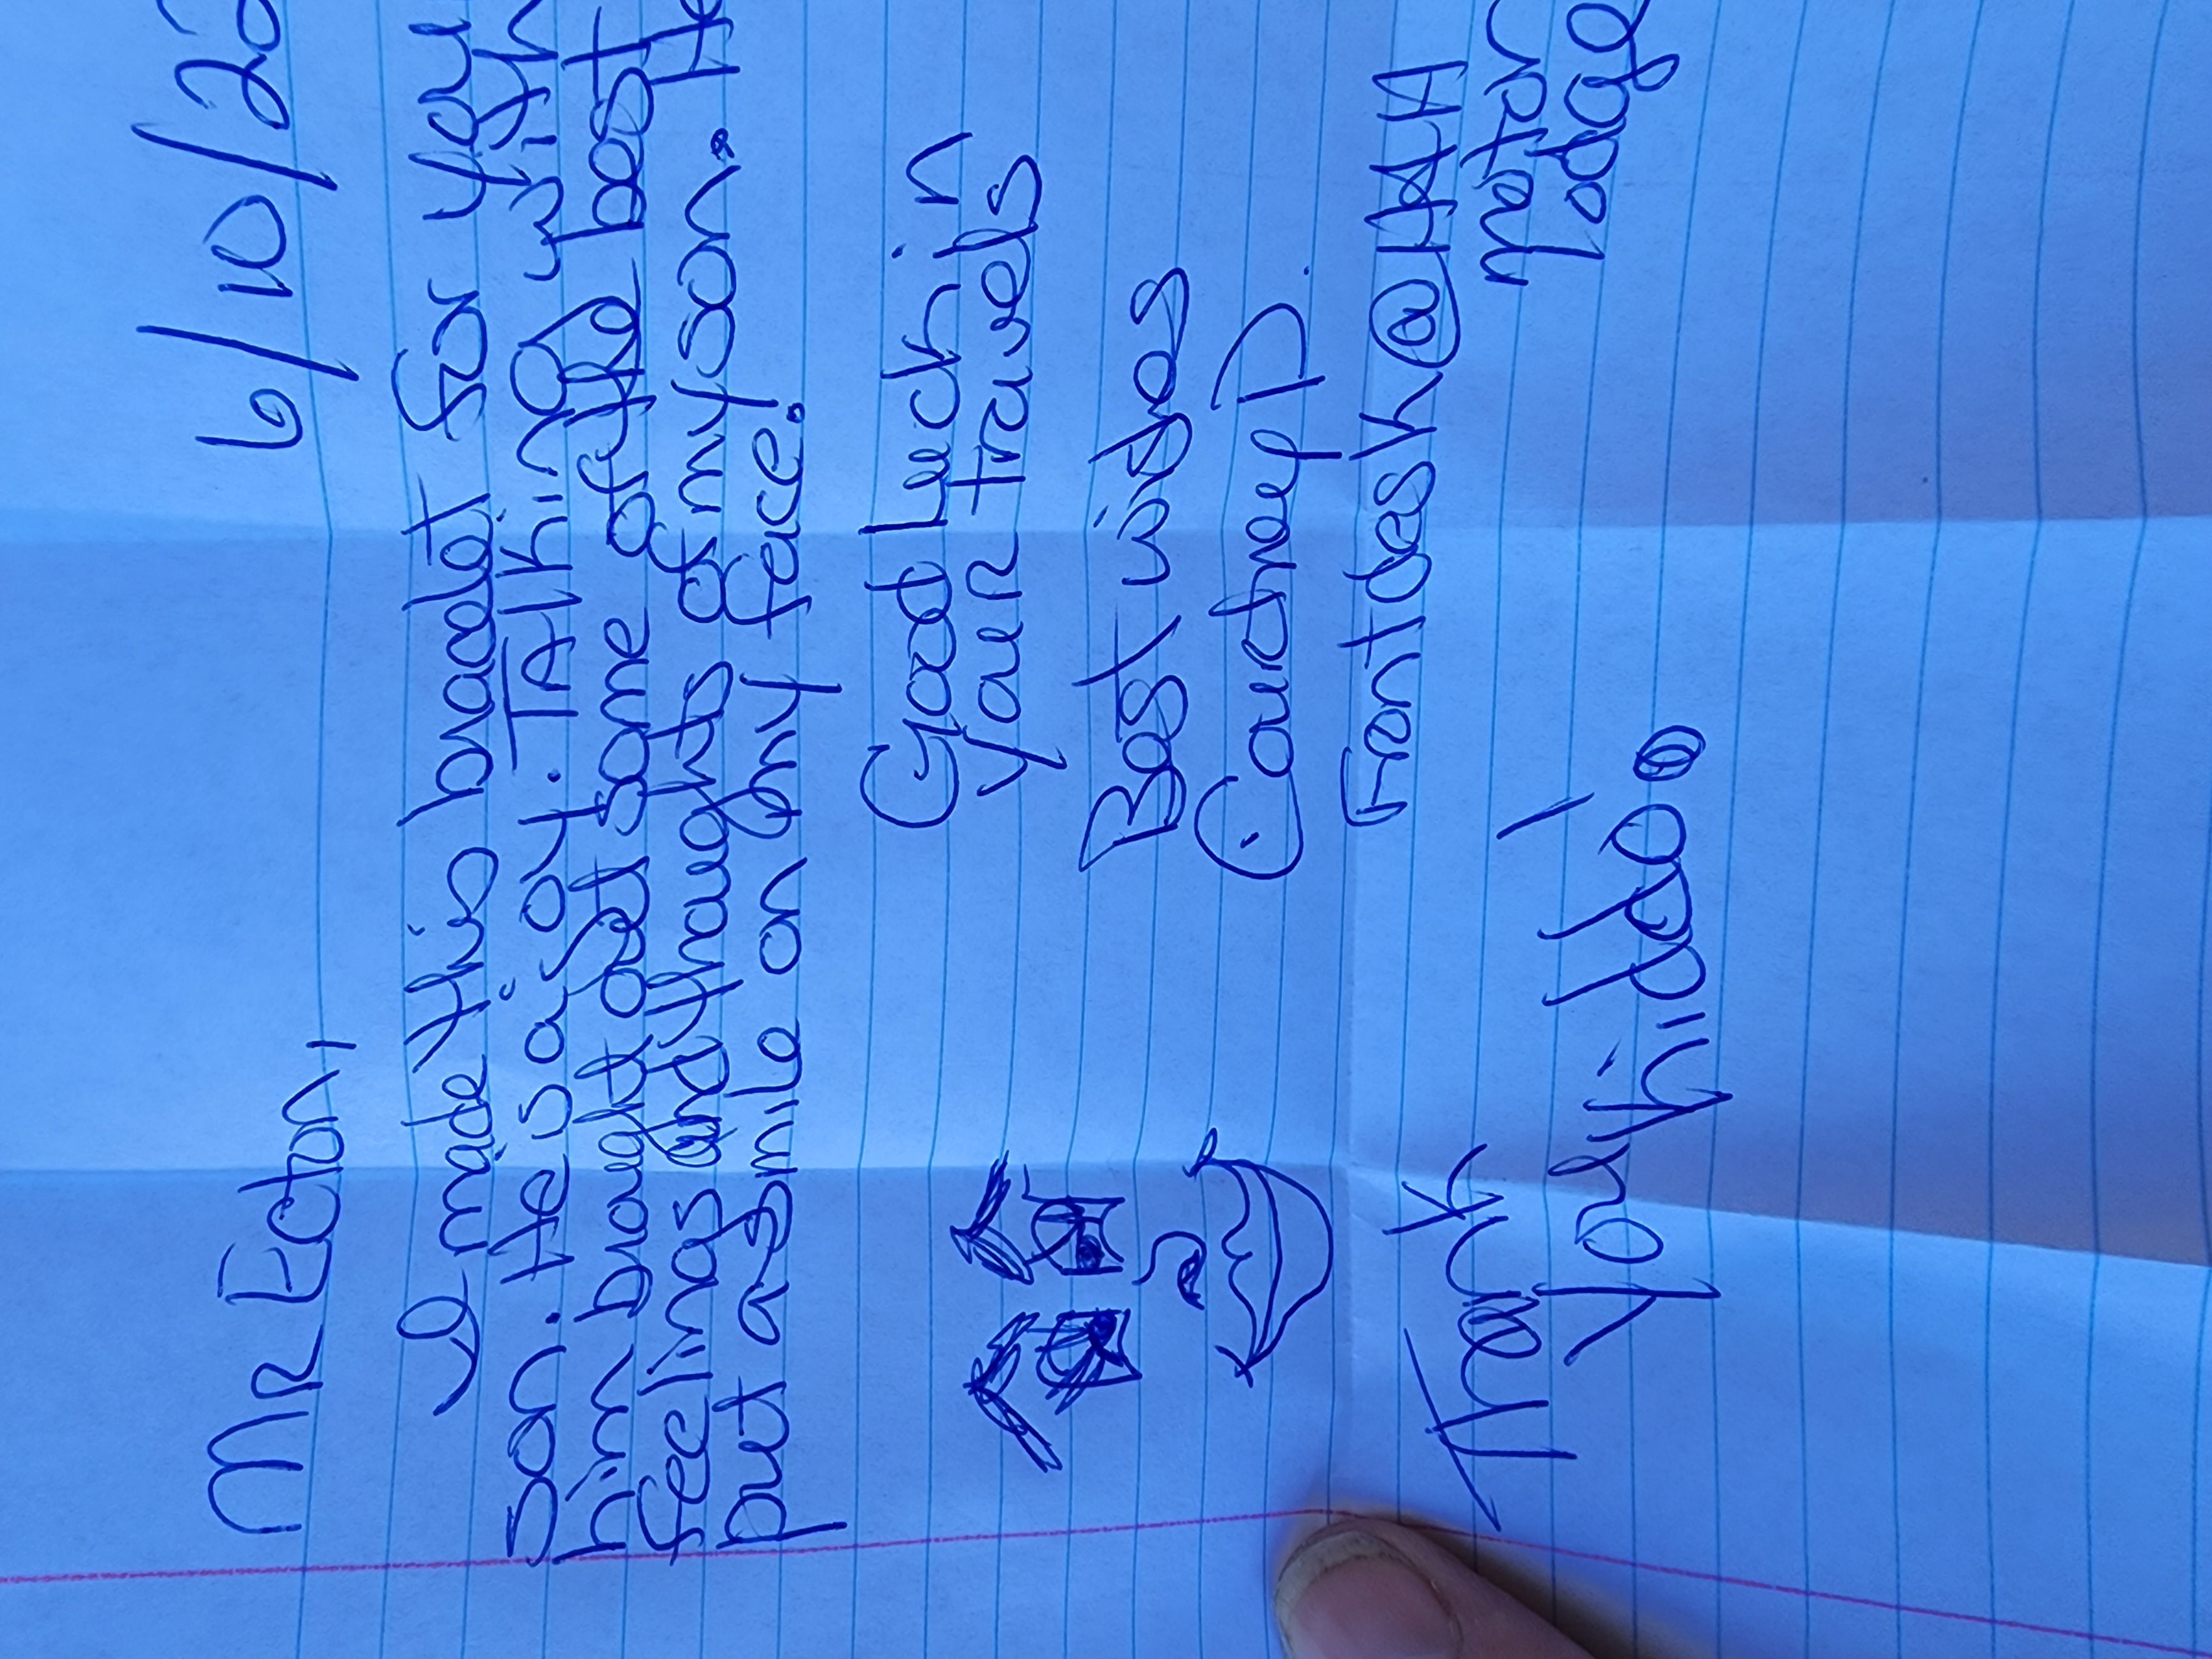 6/10/20
Mr Ecton,
I made this bracelet for your
son. He is a joy. Talking with
him brought out some of the best
feelings and thoughts of my son. He
put a smile on my face.
Good Luck in
your travels
Best wishes
Courtney P.
Front desk @ HH
motor
lodge
Thank
You